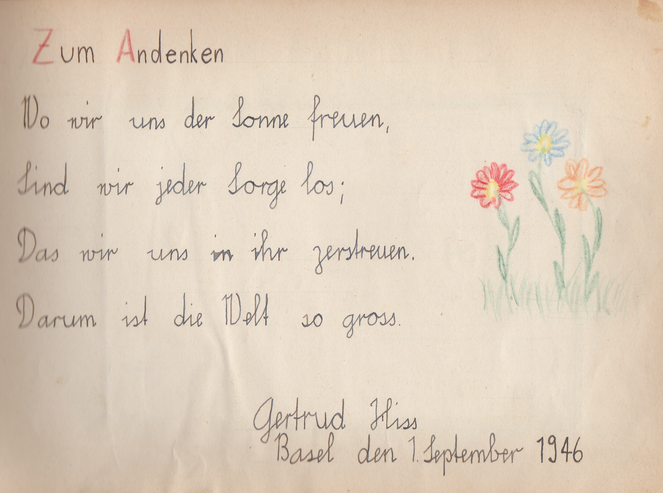 Zum Andenken
Wo wir uns der Sonne freuen,
Sind wir jeder Sorge los;
Das wir uns in ihr zerstreuen.
Darum ist die Welt so gross.
Gertrud Hiss
Basel den 1. September 1946